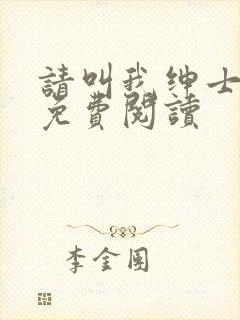 請叫我绅士
免費閱讀
李金團